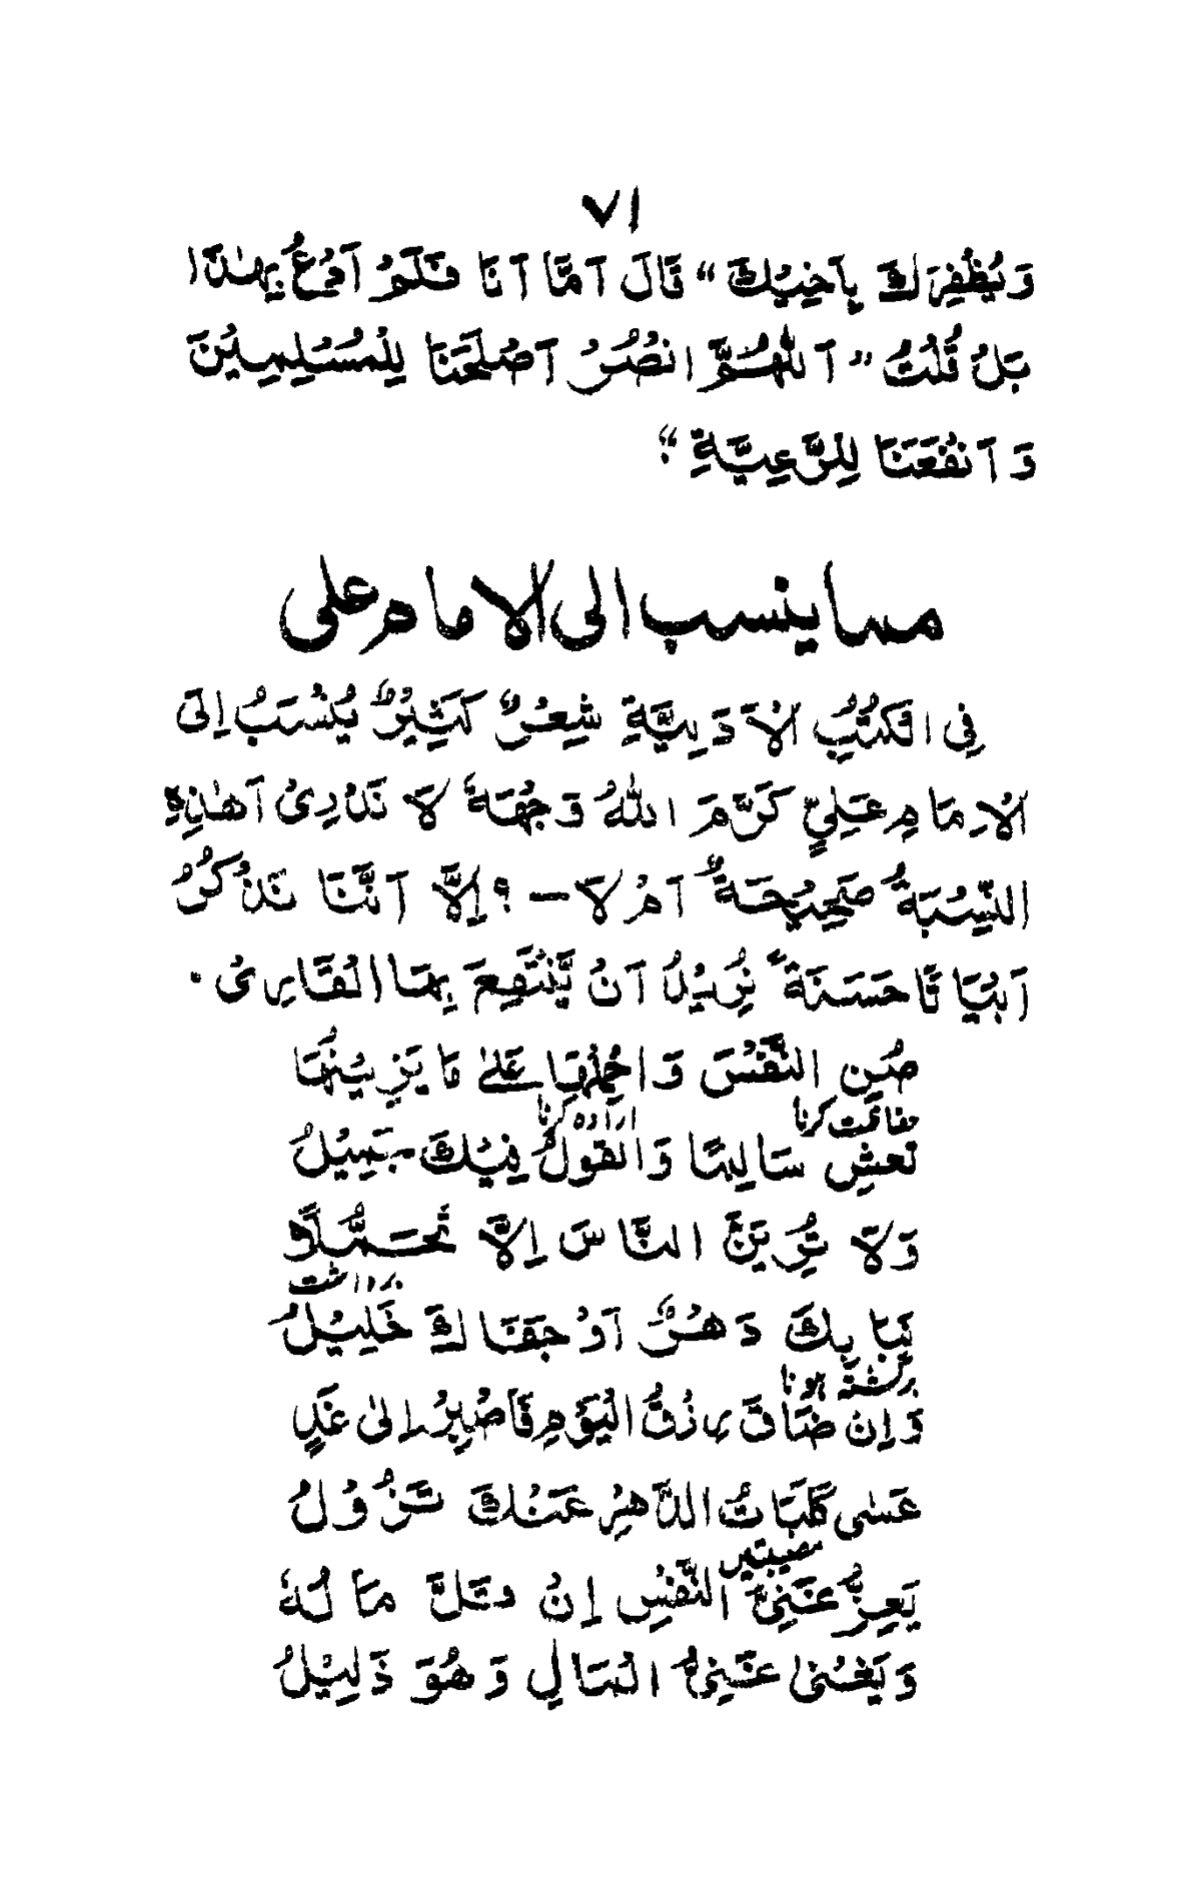 ٧١
وَ يُظْفِرَكَ بِأَخِيْكَ “ قَالَ أَمَّا أَنَا فَلَمْ أَدْعُ بِهٰذَا
بَلْ قُلْتُ ” اَللّٰهُمَّ انْصُرْ أَصْلَحَنَا لِلْمُسْلِمِيْنَ
وَ أَنْفَعَنَا لِلرَّعِيَّةِ “.
ما ينسب الى الامام على
فِى الْكُتُبِ الْأَدَبِيَّةِ شِعْرٌ كَثِيْرٌ يُنْسَبُ اِلَى
الْاِمَامِ عَلِيٍّ كَرَّمَ اللّٰهُ وَجْهَهٗ لَا نَدْرِىْ أَهٰذِهِ
النِّسْبَةُ صَحِيْحَةٌ أَمْ لَا – ؟ اِلَّا أَنَّنَا نَذْكُرُ
أَبْيَاتًا حَسَنَةً نُرِيْدُ أَنْ يَّنْتَفِعَ بِهَا الْقَارِىْ ۔
صُنِ النَّفْسَ وَاحْمِلْهَا عَلىٰ مَا يَزِيْنُهَا
حفاظت کرنا ارادہ کرنا
تَعِشْ سَالِمًا وَالْقَوْلُ فِيْكَ جَمِيْلُ
وَلَا تُرِيَنَّ النَّاسَ اِلَّا تَحَمُّلًا
برداشت
نَبَا بِكَ دَهْرٌ أَوْ جَفَاكَ خَلِيْلُ
برگشتہ ہونا
وَ اِنْ ضَاقَ رِزْقُ الْيَوْمِ فَاصْبِرْ اِلىٰ غَدٍ
عَسٰى نَكَبَاتُ الدَّهْرِ عَنْكَ تَزُوْلُ
مصیبتیں
يَعِزُّ غَنِىُّ النَّفْسِ اِنْ قَلَّ مَا لُهٗ
وَ يَغْنىٰ غَنِىُّ الْمَالِ وَ هُوَ ذَلِيْلُ